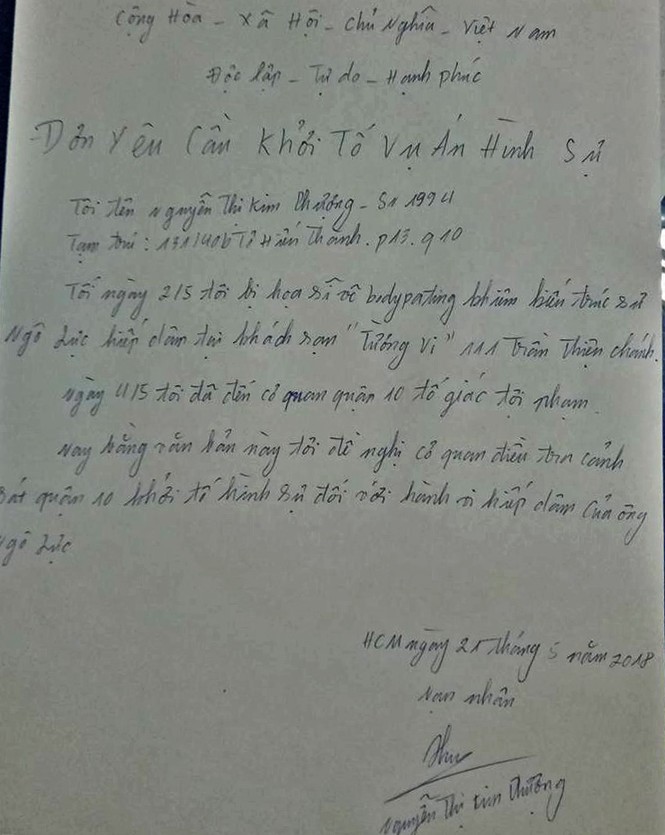 Cộng Hòa - Xã Hội - Chủ Nghĩa - Việt Nam
Độc lập - Tự do - Hạnh phúc
Đơn Yêu Cầu Khởi Tố Vụ Án Hình Sự
Tôi tên Nguyễn Thị Kim Phượng - Sn 1994
Tạm trú: Tô Hiến Thành. p13. q10
Tối ngày 2/5 tôi bị họa sĩ vẽ bodypating khiêm kiến trúc sư
Ngô Lực hiếp dâm tại khách sạn "Tường Vi" 111 Trần Thiện Chánh.
Ngày 4/5 tôi đã đến cơ quan quận 10 tố giác tội phạm.
Nay bằng văn bản này tôi đề nghị cơ quan điều tra cảnh
sát quận 10 khởi tố hình sự đối với hành vi hiếp dâm của ông
Ngô Lực
HCM ngày 21 tháng 5 năm 2018
Nạn nhân
Nguyễn Thị Kim Phượng